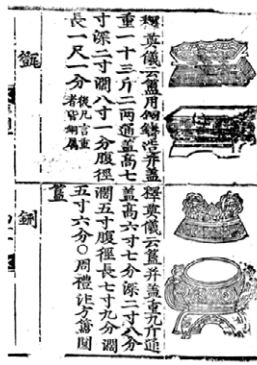 釋奠儀云簠用銅鑄造并蓋
重一十三斤二兩通蓋高七
寸深二寸濶八寸一分腹徑
長一尺一分
後凡言重
者皆銅屬
釋奠儀云簋并蓋重九斤通
蓋高六寸七分深二寸八分
濶五寸腹徑長七寸九分濶
五寸六分○周禮注方簠圓
簋
鉶